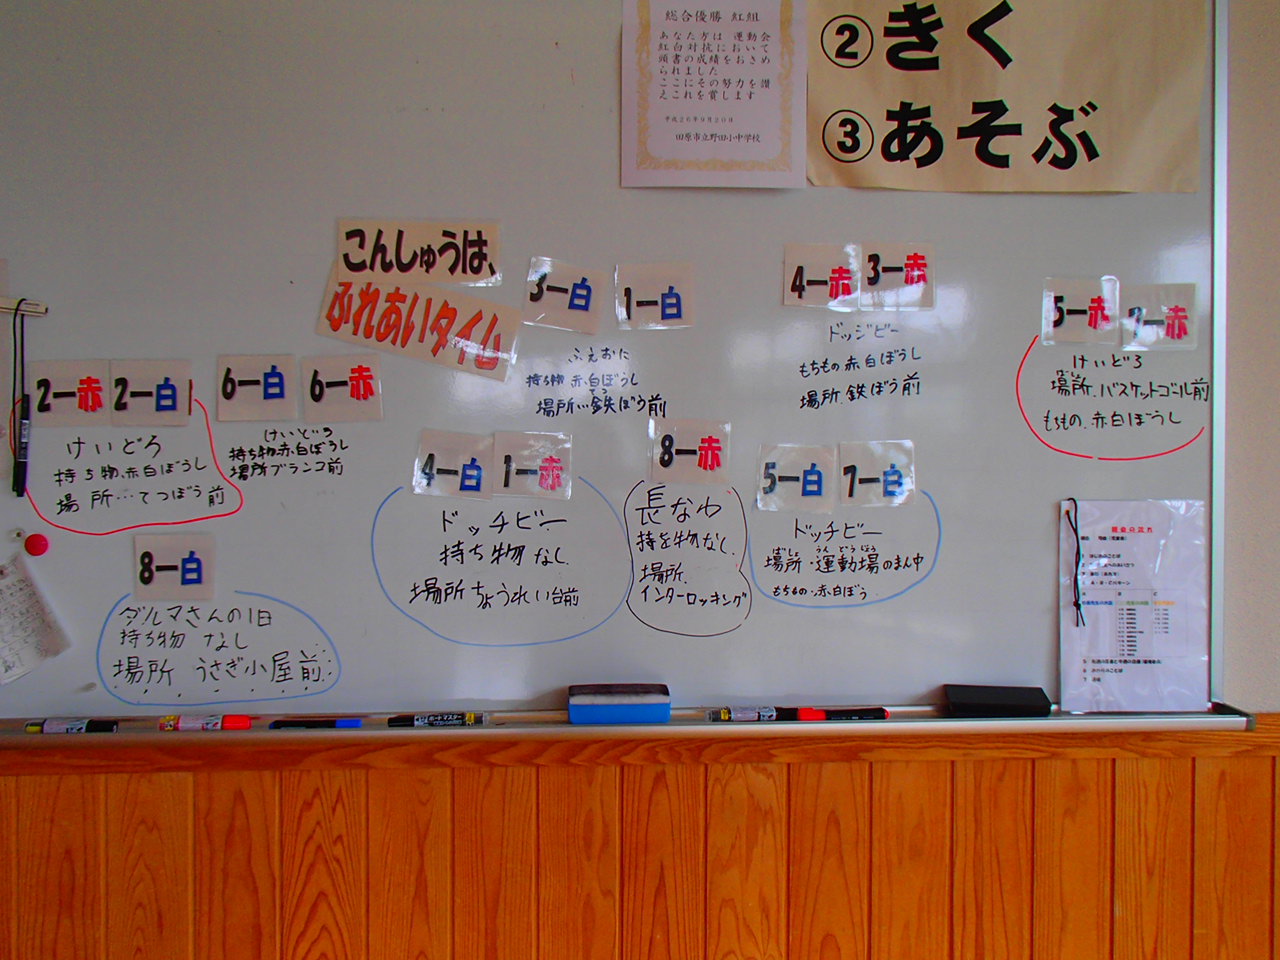 総合優勝 紅組
あなた方は 運動会
紅白対抗において
頭書の成績をおさめ
られました
ここにその努力を讃
えこれを賞します
平成26年9月20日
田原市立野田小中学校
②きく
③あそぶ
こんしゅうは、
ふれあいタイム
2－赤 2－白
けいどろ
持ち物、赤白ぼうし
場所…てつぼう前
6－白 6－赤
けいどろ
持ち物、赤白ぼうし
場所ブランコ前
8－白
ダルマさんの1日
持ち物 なし
場所 うさぎ小屋前
3－白 1－白
ふえおに
持ち物 赤、白ぼうし
てつ
場所…鉄ぼう前
4－白 1－赤
ドッチビー
持ち物なし
場所ちょうれい台前
8－赤
長なわ
持ち物なし
場所
インターロッキング
4－赤 3－赤
ドッジビー
もちもの 赤白ぼうし
場所 鉄ぼう前
5－白 7－白
ドッチビー
ばしょ うんどうじょう
場所・運動場のまん中
もちもの・赤白ぼう
5－赤 7－赤
けいどろ
ばしょ
場所.バスケットゴール前
もちもの.赤白ぼうし
ボードマスター